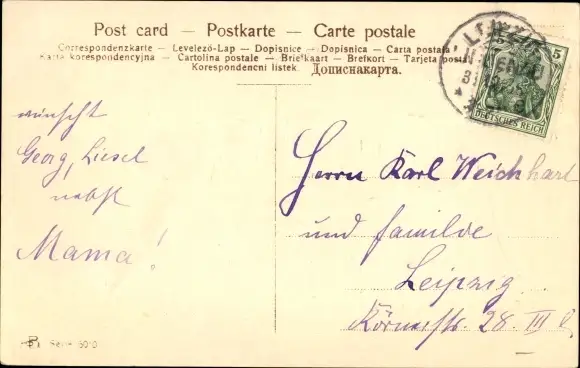 Post card – Postkarte – Carte postale
Correspondenzkarte – Levelező-Lap – Dopisnice – Dopisnica – Carta postala
Karta korespondencyjna – Cartolina postale – Briefkaart – Brefkort – Tarjeta postal
Korespondencní listek. Дописнакарта.
5
DEUTSCHES REICH
wünscht
Georg, Liesel
nebst
Mama!
Herrn Karl Weichhart
und familie
Leipzig
Körnerstr. 28. III
Serie